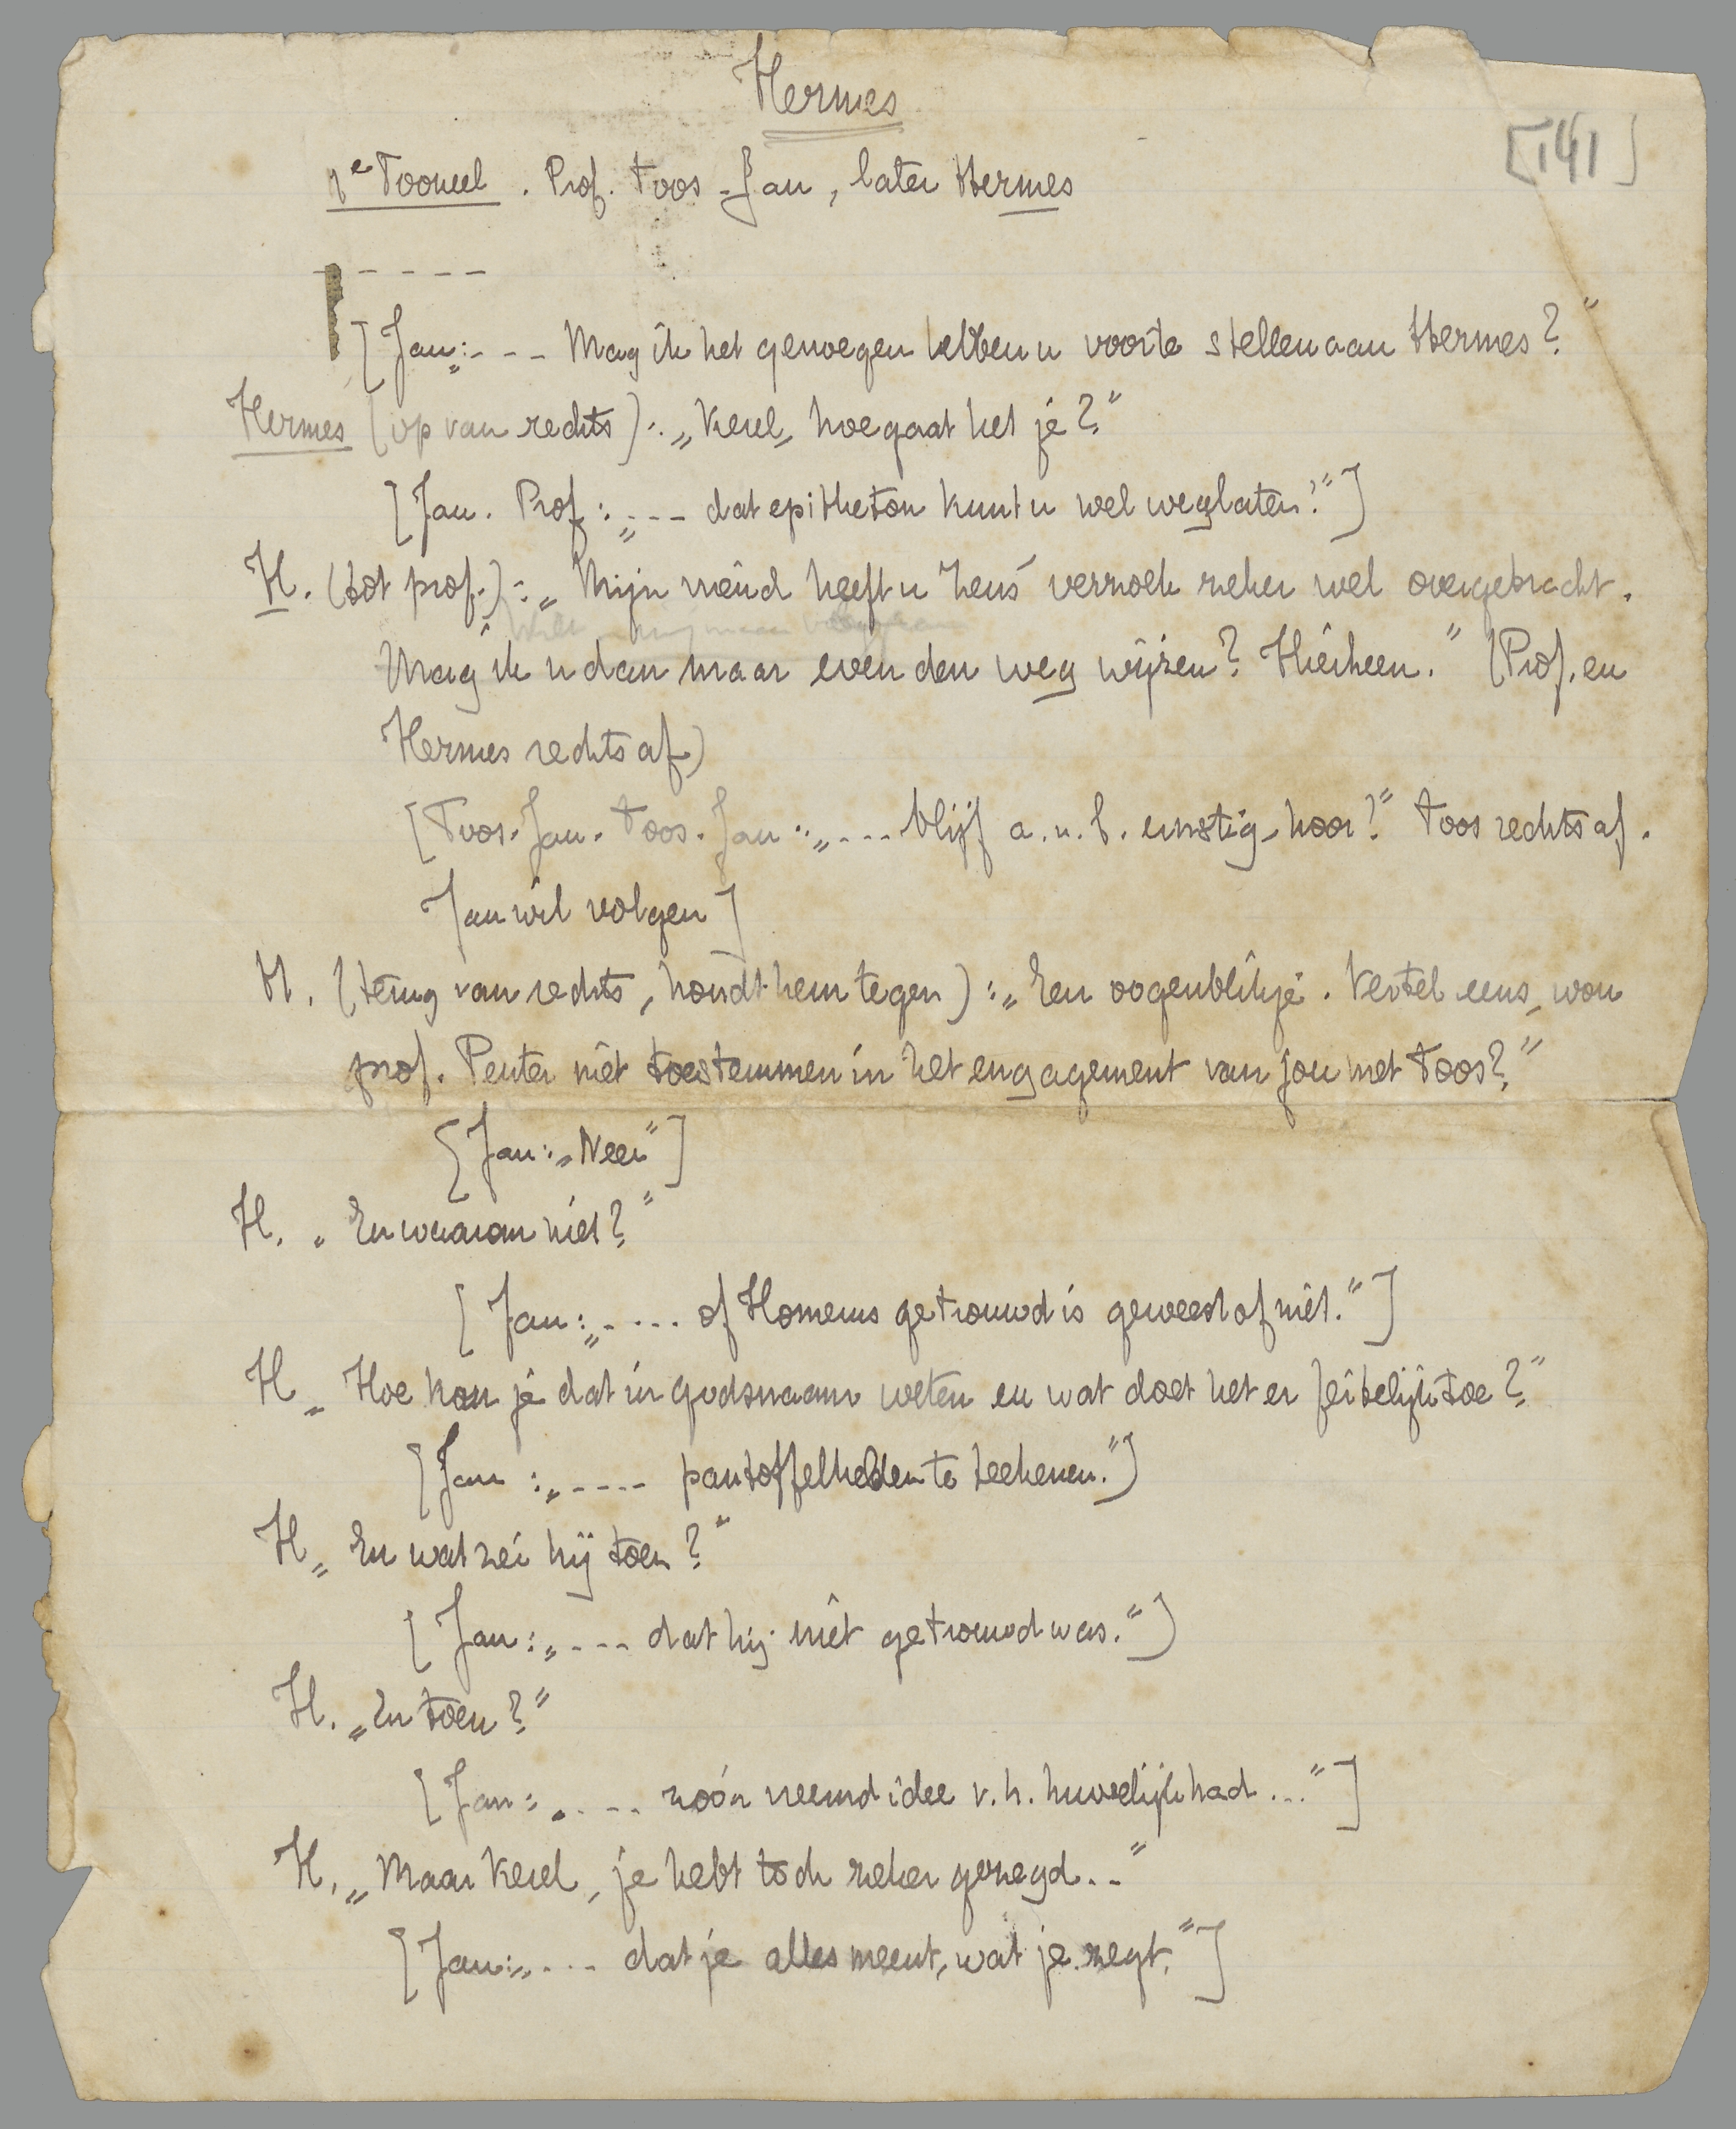 Hermes
[141]
1e Tooneel. Prof. Toos - Jan, later Hermes
- - - - -
[Jan: „- - - Mag ik het genoegen hebben u voor te stellen aan Hermes?"
Hermes (op van rechts): „Kerel, hoe gaat het je?"
[Jan. Prof: „- - - dat epitheton kunt u wel weglaten!"]
H. (tot prof.): „Mijn vriend heeft u Zeus' verzoek zeker wel overgebracht.
Mag ik u dan maar even den weg wijzen? Hierheen." (Prof. en
Hermes rechts af)
[Toos. Jan. Toos. Jan: „- - - blijf a.u.b. ernstig, hoor!" Toos rechts af.
Jan wil volgen]
H. (terug van rechts, houdt hem tegen): „Een oogenblikje. Vertel eens, wou
prof. Peuter niet toestemmen in het engagement van jou met Toos?"
[Jan: „Neen"]
H. „En waarom niet?"
[Jan: „- - - - of Homerus getrouwd is geweest of niet."]
H „Hoe kon je dat in godsnaam weten en wat doet het er feitelijk toe?"
[Jan: „- - - - pantoffelhelden te teekenen."]
H „En wat zei hij toen?"
[Jan: „- - - dat hij niet getrouwd was."]
H. „En toen?"
[Jan: „- - - - zóó'n vreemd idee v.h. huwelijk had ..."]
H. „Maar kerel, je hebt toch zeker gezegd.."
[Jan: „- - - dat je alles meent, wat je zegt."]